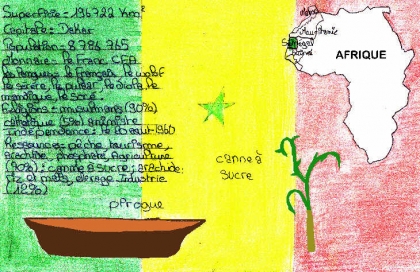 Superficie = 196722 Km²
Capitale = Dakar
Population = 8 786 765
Monnaie = le franc CFA
les langues = le français, le wolof
le sérère, le pular, le diola, le
mandigue, le soce.
Religions = musulmans (90%)
catholique (5%) animiste
Indépendance = le 20 août 1960
Ressources = pêche, tourisme,
arachide, phosphate, Agriculture
(70%) = canne à sucre, arachide,
riz et maïs, élevage. Industrie
(12%)
pirogue
canne à
sucre
Mauritanie
Sénégal
AFRIQUE